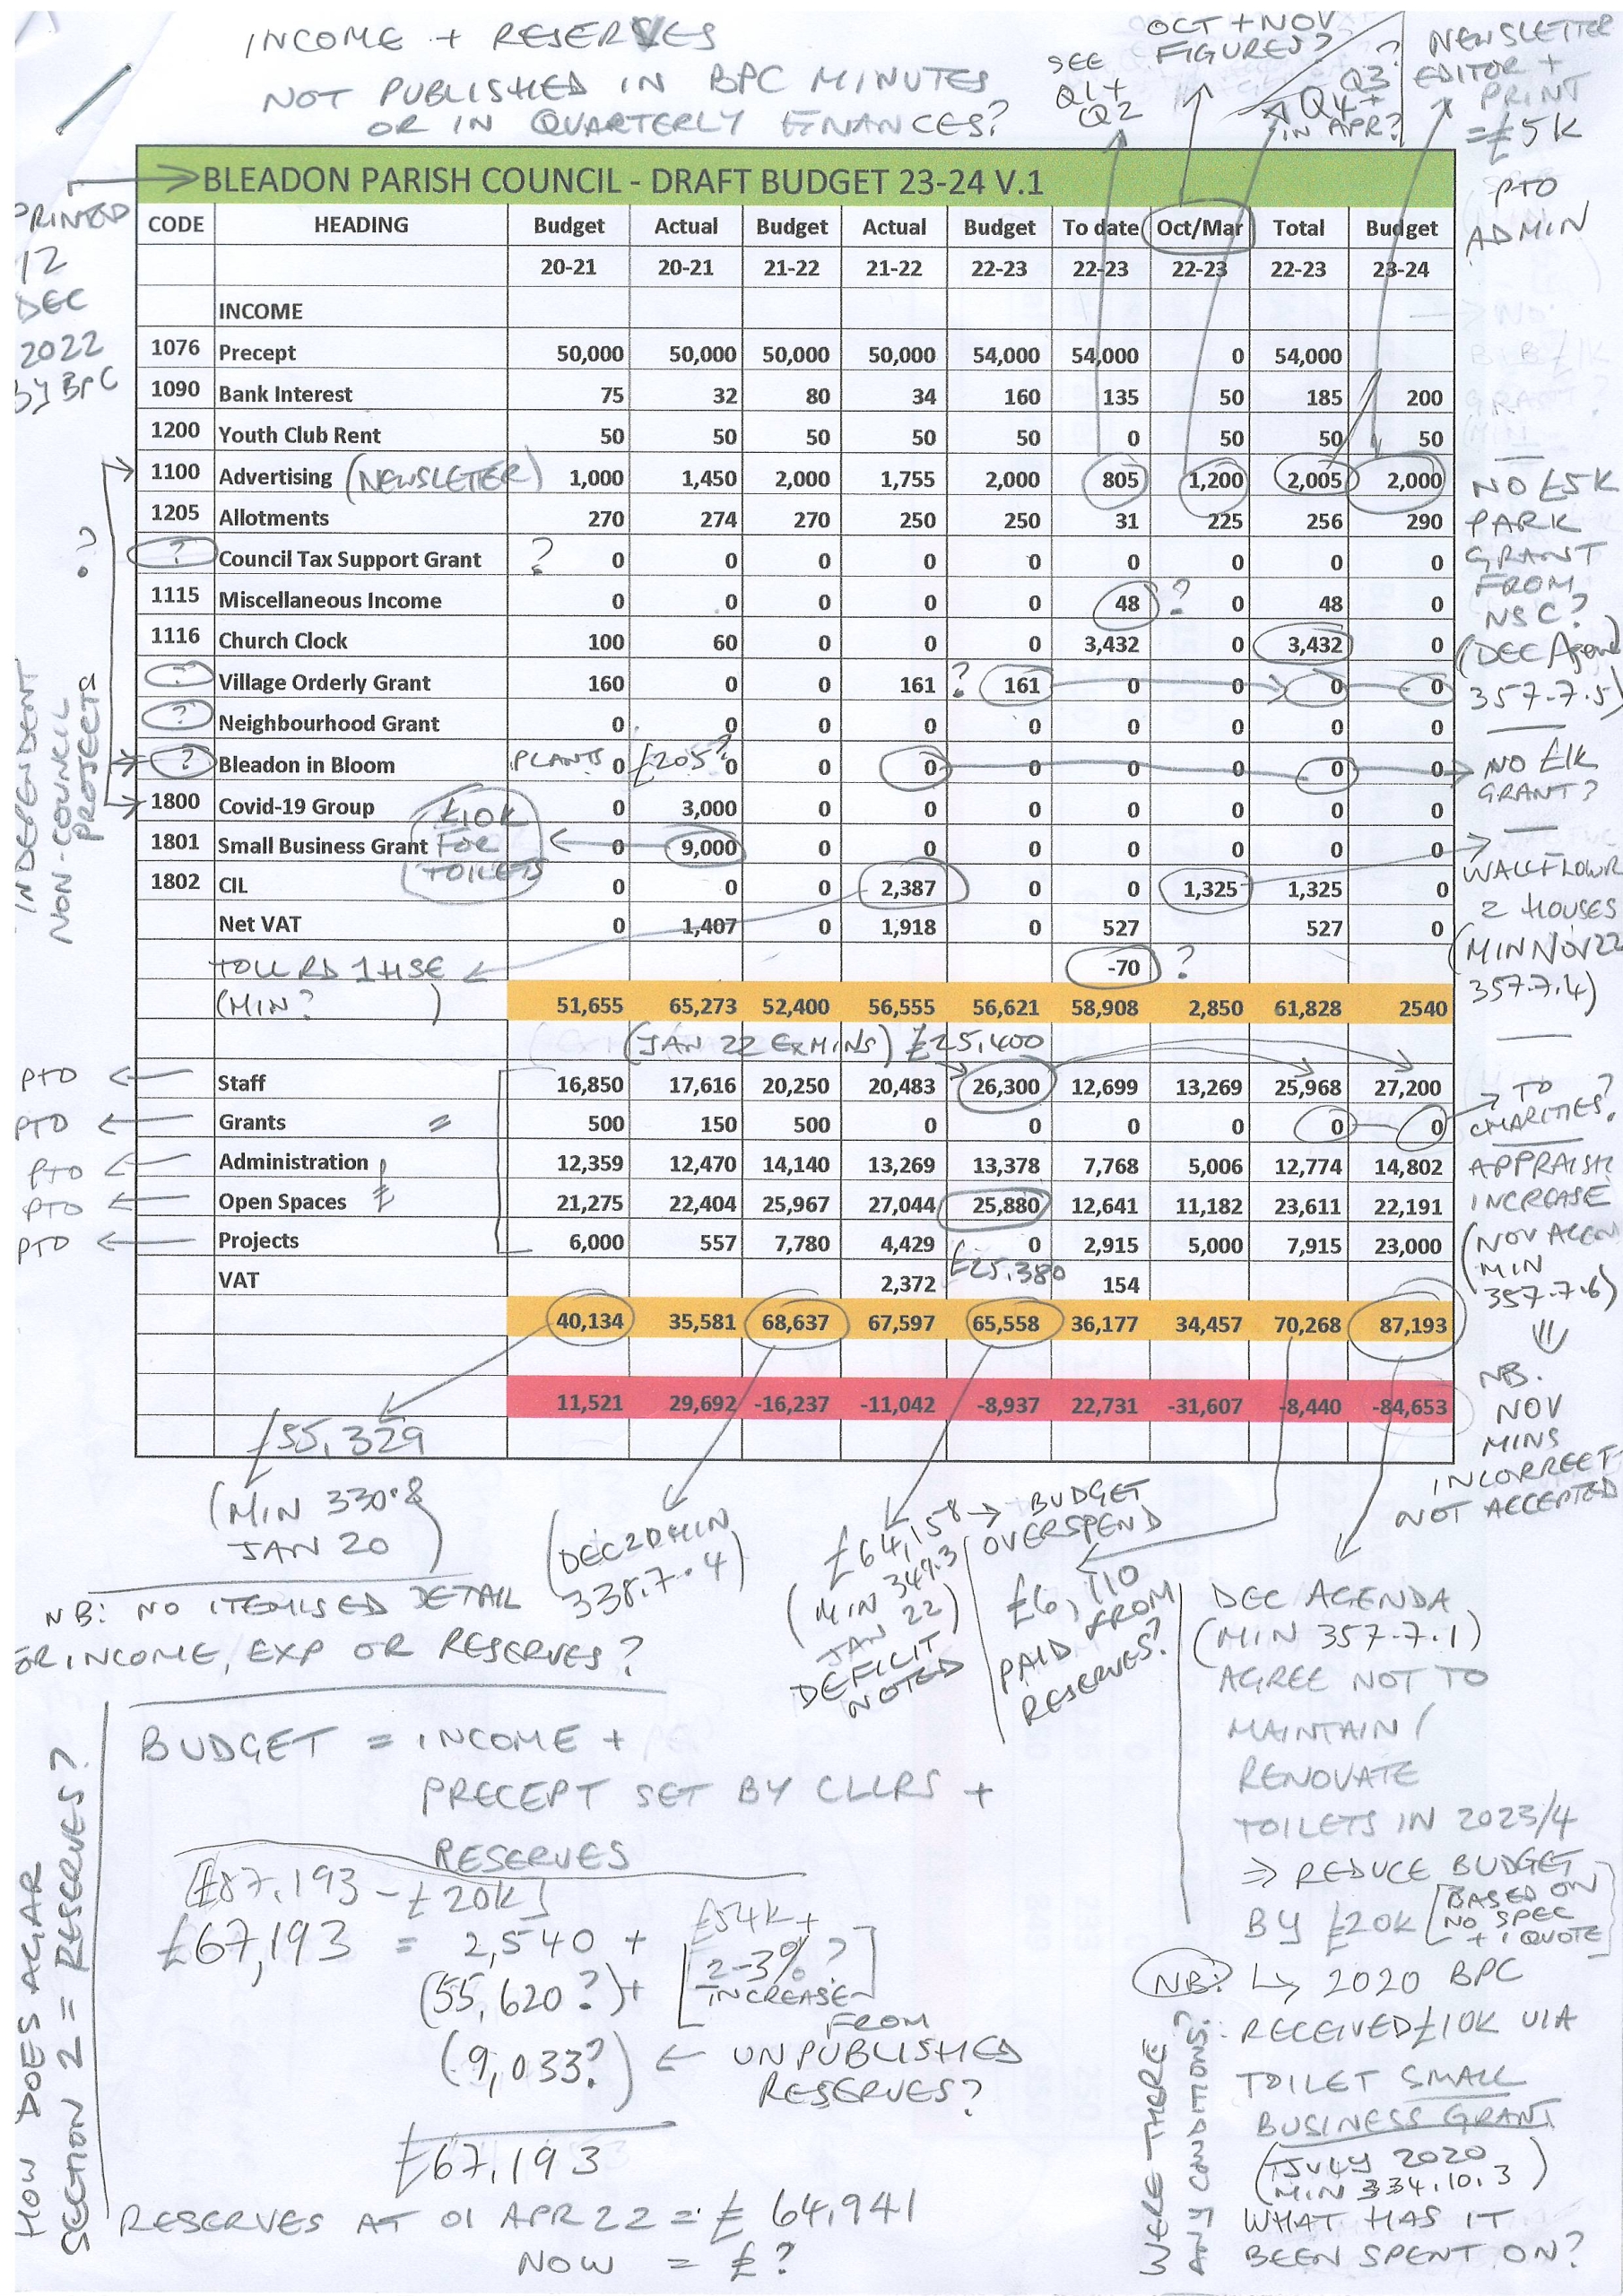 INCOME + RESERVES
NOT PUBLISHED IN BPC MINUTES
OR IN QUARTERLY FINANCES?
SEE
Q1+
Q2
OCT + NOV
FIGURES?
Q3?
Q4+
IN APR?
NEWSLETTER
EDITOR +
PRINT
=£5K
PTO
ADMIN
PRINTED
12
DEC
2022
by BPC
BLEADON PARISH COUNCIL - DRAFT BUDGET 23-24 V.1
CODE HEADING Budget Actual Budget Actual Budget To date Oct/Mar Total Budget
20-21 20-21 21-22 21-22 22-23 22-23 22-23 22-23 23-24
INCOME
1076 Precept 50,000 50,000 50,000 50,000 54,000 54,000 0 54,000
1090 Bank Interest 75 32 80 34 160 135 50 185 200
1200 Youth Club Rent 50 50 50 50 50 0 50 50 50
1100 Advertising (NEWSLETER) 1,000 1,450 2,000 1,755 2,000 805 1,200 2,005 2,000
1205 Allotments 270 274 270 250 250 31 225 256 290
? Council Tax Support Grant ? 0 0 0 0 0 0 0 0 0
1115 Miscellaneous Income 0 0 0 0 0 48 ? 0 48 0
1116 Church Clock 100 60 0 0 0 3,432 0 3,432 0
? Village Orderly Grant 160 0 0 161 ? 161 0 0 0 0
? Neighbourhood Grant 0 0 0 0 0 0 0 0 0
? Bleadon in Bloom PLANTS 0 £205? 0 0 0 0 0 0 0 0
1800 Covid-19 Group 0 3,000 0 0 0 0 0 0 0
1801 Small Business Grant 0 9,000 0 0 0 0 0 0 0
£10K
FOR
TOILETS
1802 CIL 0 0 0 2,387 0 0 1,325 1,325 0
Net VAT 0 1,407 0 1,918 0 527 527 0
TOLL RD 1 HSE -70 ?
(MIN? ) 51,655 65,273 52,400 56,555 56,621 58,908 2,850 61,828 2540
(JAN 22 EX MINS) £25,400
PTO Staff 16,850 17,616 20,250 20,483 26,300 12,699 13,269 25,968 27,200
PTO Grants 500 150 500 0 0 0 0 0 0
PTO Administration 12,359 12,470 14,140 13,269 13,378 7,768 5,006 12,774 14,802
PTO Open Spaces 21,275 22,404 25,967 27,044 25,880 12,641 11,182 23,611 22,191
PTO Projects 6,000 557 7,780 4,429 0 2,915 5,000 7,915 23,000
£25,380
VAT 2,372 154
40,134 35,581 68,637 67,597 65,558 36,177 34,457 70,268 87,193
11,521 29,692 -16,237 -11,042 -8,937 22,731 -31,607 -8,440 -84,653
INDEPENDENT
NON-COUNCIL
PROJECTS
?
NO £5K
PARK
GRANT
FROM
NSC?
(DEC Agend
357.7.5)
NO £1K
GRANT?
WALLFLOWR
2 HOUSES
(MIN NOV 22
357.7.4)
TO
CHARITIES?
APPRAISAL
INCREASE
(NOV AGEN
MIN
357.7.6)
NB.
NOV
MINS
INCORRECT-
NOT ACCEPTED
£55,329
(MIN 330.8
JAN 20 )
(DEC20 MIN
338.7.4)
£64,158
(MIN 349.3
JAN 22 )
DEFICIT
NOTED
BUDGET
OVERSPEND
£6,110
PAID FROM
RESERVES?
NB: NO ITEMISED DETAIL
OR INCOME, EXP OR RESERVES?
DEC AGENDA
(MIN 357.7.1)
AGREE NOT TO
MAINTAIN /
RENOVATE
TOILETS IN 2023/4
⇒ REDUCE BUDGET
BY £20K [BASED ON
NO SPEC
+ 1 QUOTE]
NB: 2020 BPC
RECEIVED £10K VIA
TOILET SMALL
BUSINESS GRANT
(JULY 2020
MIN 334.10.3 )
WHAT HAS IT
BEEN SPENT ON?
WERE THERE
ANY CONDITIONS?
HOW DOES AGAR
SECTION 2 = RESERVES?
BUDGET = INCOME +
PRECEPT SET BY CLLRS +
RESERVES
[£87,193 - £20K]
£67,193 = 2,540 +
£54K +
[2-3%?]
INCREASE
(55,620?) +
FROM
(9,033?) ← UNPUBLISHED
RESERVES?
£67,193
RESERVES AT 01 APR 22 = £ 64,941
NOW = £ ?